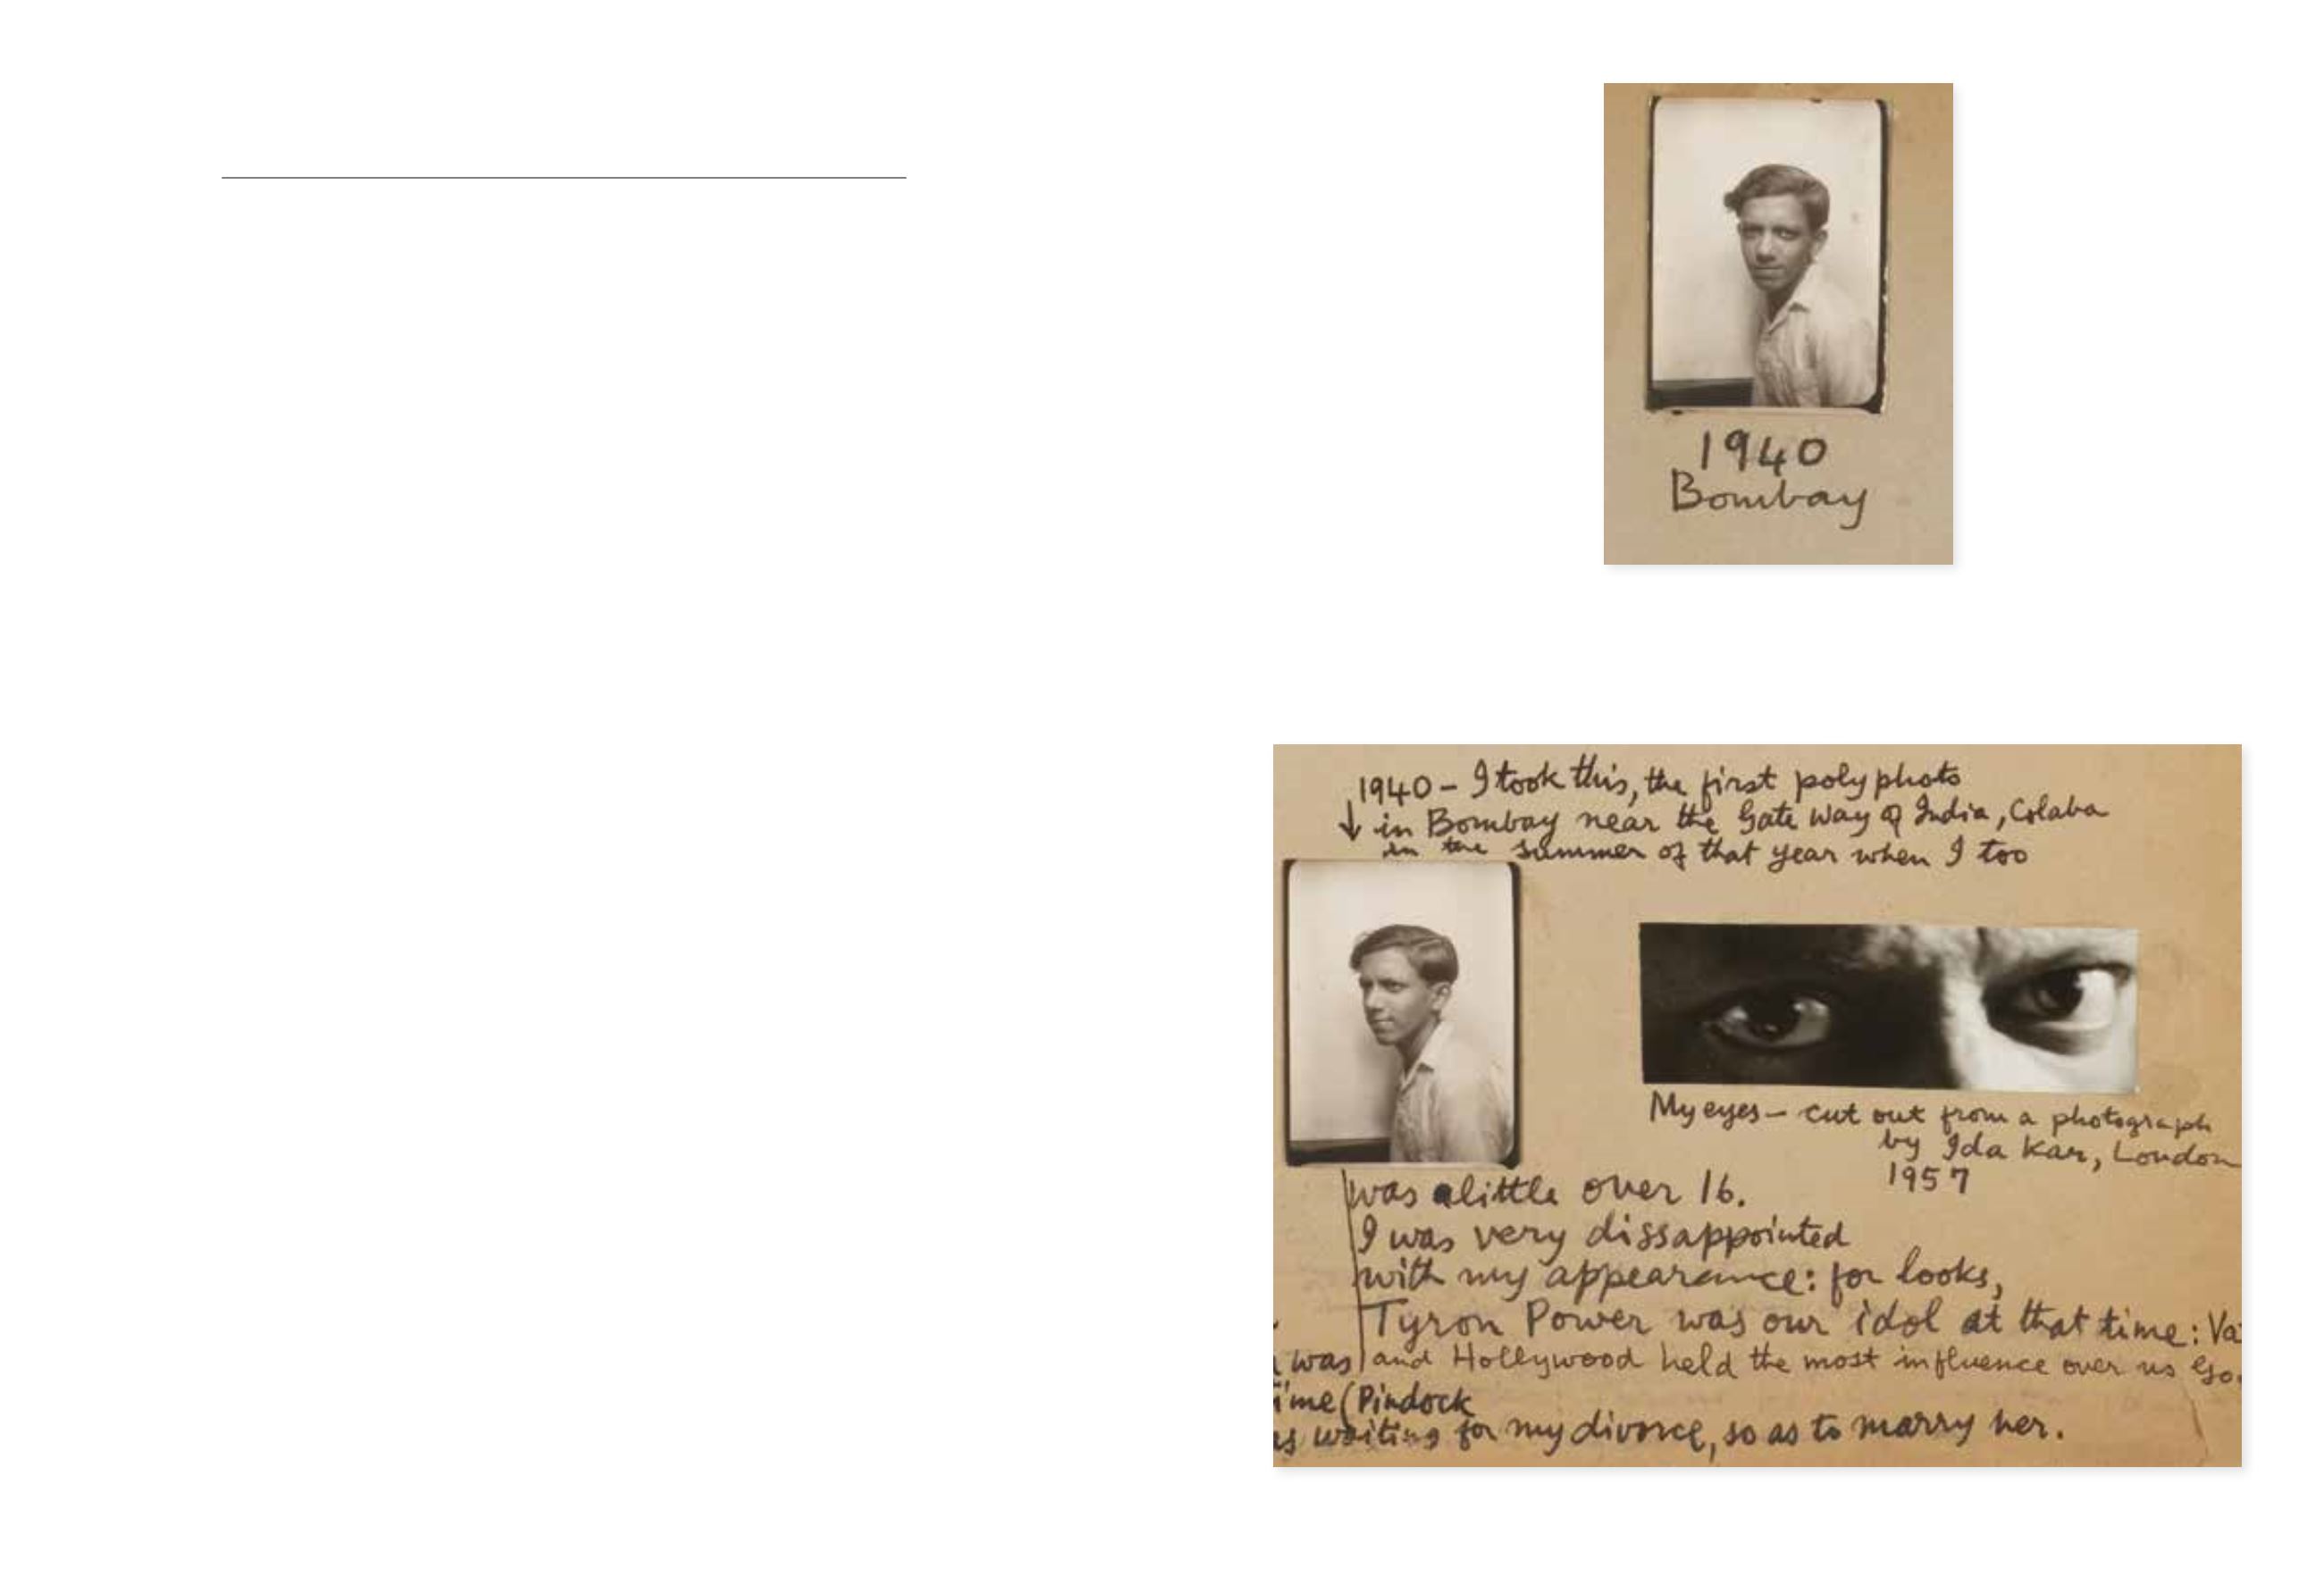 1940
Bombay
1940 – I took this, the first poly photo
in Bombay near the Gate Way of India, Colaba
in the summer of that year when I too
My eyes – cut out from a photograph
by Ida Kar, London
1957
was a little over 16.
I was very dissappointed
with my appearance: for looks,
Tyron Power was our idol at that time: Va
was and Hollywood held the most influence over us
time (Pindock
as waiting for my divorce, so as to marry her.